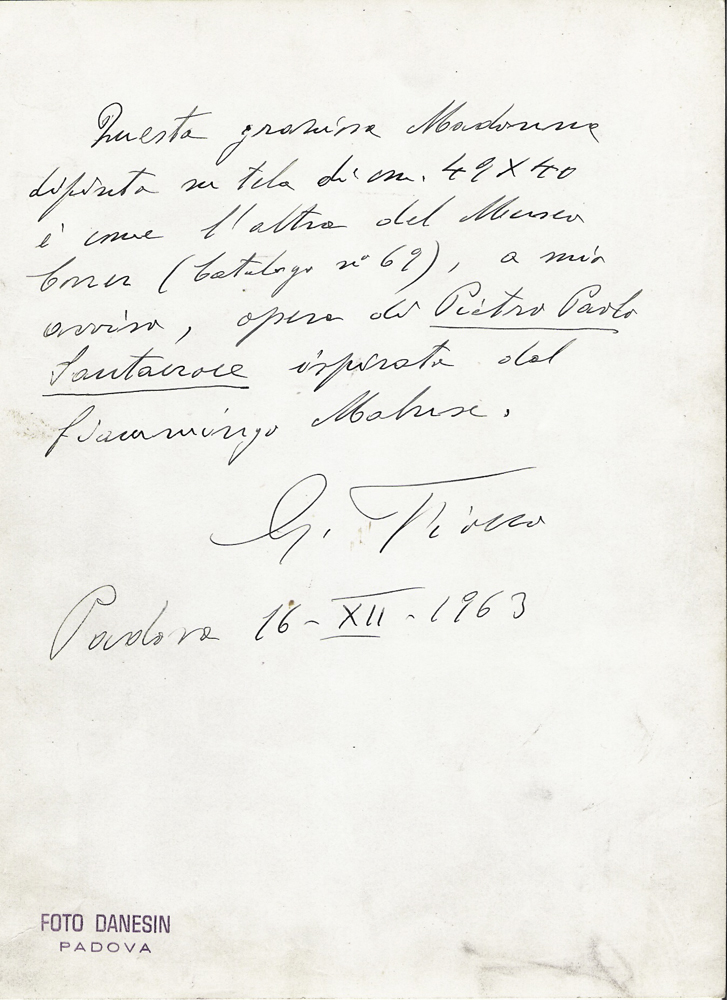 Questa graziosa Madonna
dipinta su tela di cm. 49 X 40
è come l'altra del Museo
Correr (Catalogo n° 69), a mio
avviso, opera di Pietro Paolo
Santacroce ispirata dal
fiammingo Mabuse.
G. Fiocco
Padova 16 - XII - 1963
FOTO DANESIN
PADOVA